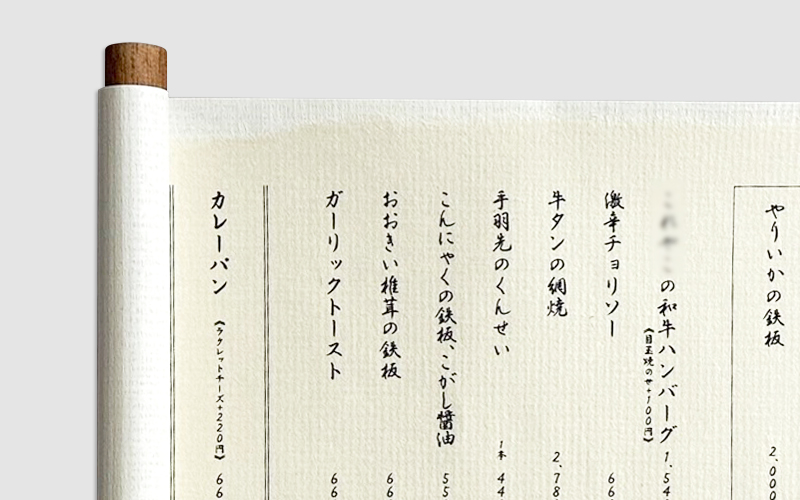 やりいかの鉄板 2.000
の和牛ハンバーグ 1.54
《目玉焼のせ+100円》
激辛チョリソー 66
牛タンの網焼 2.78
手羽先のくんせい 1本 44
こんにゃくの鉄板、こがし醤油 55
おおきい椎茸の鉄板 66
ガーリックトースト 66
カレーパン 《ラクレットチーズ+220円》 66